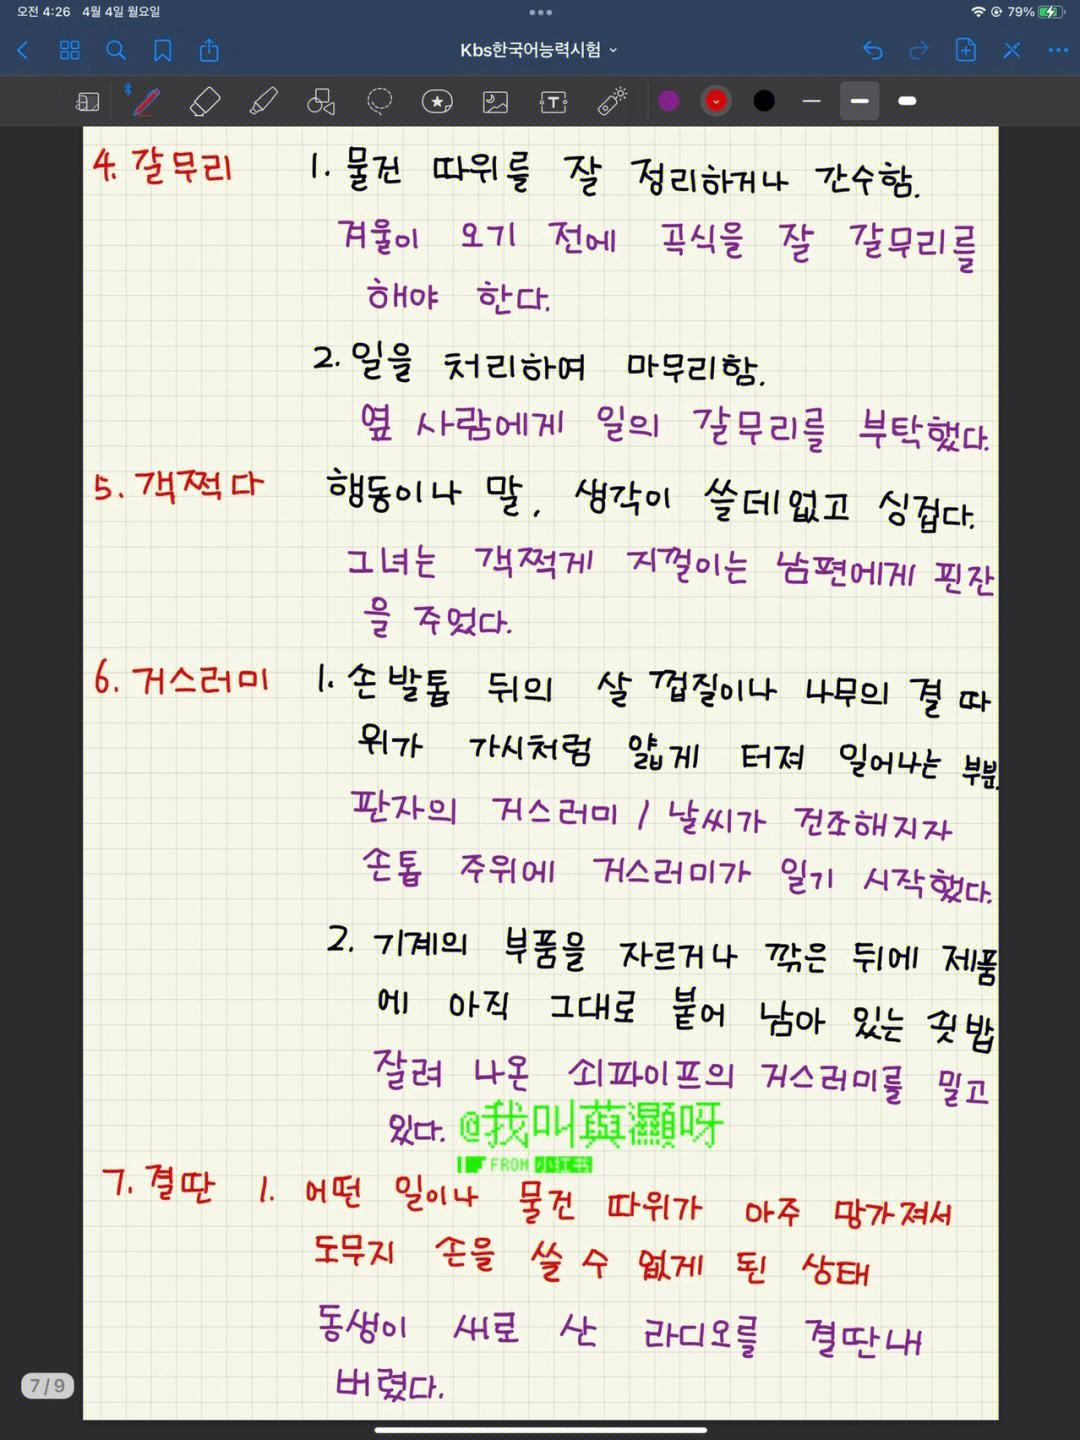 오전 4:26 4월 4일 월요일
79%
Kbs한국어능력시험
4. 갈무리 1. 물건 따위를 잘 정리하거나 간수함.
겨울이 오기 전에 곡식을 잘 갈무리를
해야 한다.
2. 일을 처리하여 마무리함.
옆 사람에게 일의 갈무리를 부탁했다.
5. 객쩍다 행동이나 말, 생각이 쓸데없고 싱겁다.
그녀는 객쩍게 지껄이는 남편에게 핀잔
을 주었다.
6. 거스러미 1. 손발톱 뒤의 살 껍질이나 나무의 결 따
위가 가시처럼 얇게 터져 일어나는 부분.
판자의 거스러미 / 날씨가 건조해지자
손톱 주위에 거스러미가 일기 시작했다.
2. 기계의 부품을 자르거나 깎은 뒤에 제품
에 아직 그대로 붙어 남아 있는 쇳밥
잘려 나온 쇠파이프의 거스러미를 밀고
있다. @我叫英灝呀
FROM 小红书
7. 결딴 1. 어떤 일이나 물건 따위가 아주 망가져서
도무지 손을 쓸 수 없게 된 상태
동생이 새로 산 라디오를 결딴내
버렸다.
7/9